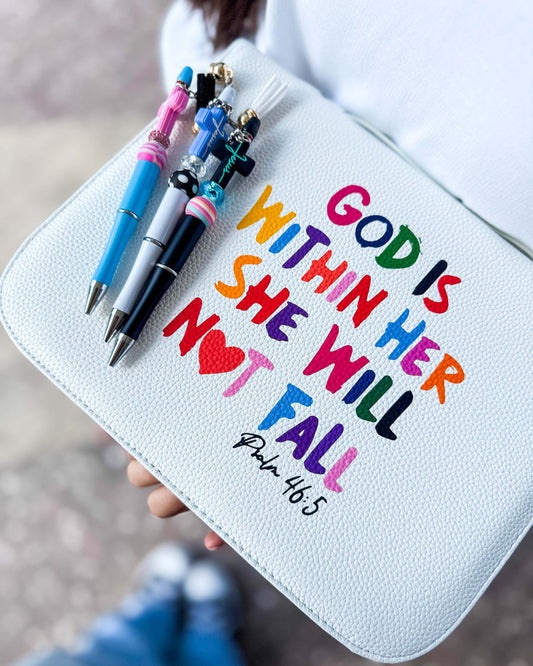 GOD IS
WITHIN HER
SHE WILL
NOT FALL
Psalm 46:5
Jesus